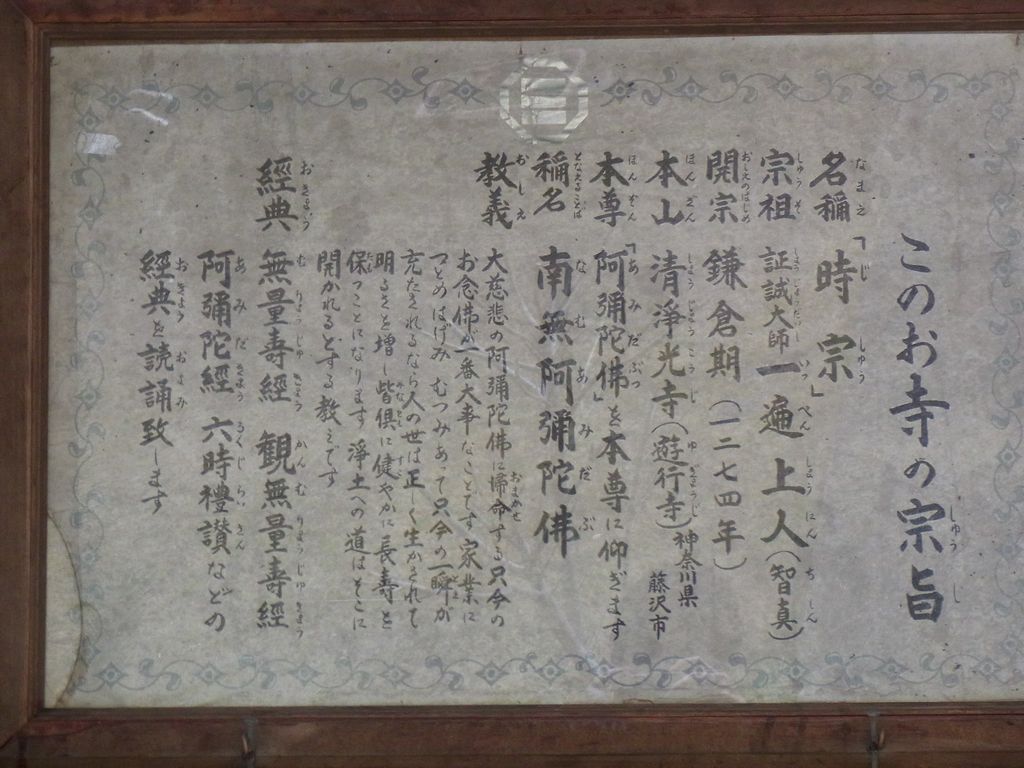 このお寺の宗旨
名稱 「時宗」
宗祖 証誠大師 一遍上人(智真)
開宗 鎌倉期(一二七四年)
本山 清淨光寺(遊行寺)神奈川県藤沢市
本尊 「阿彌陀佛」を本尊に仰ぎます
稱名 南無阿彌陀佛
教義 大慈悲の阿彌陀佛に帰命する只今の
お念佛が一番大事なことです 家業に
つとめはげみ むつみあって只今の一瞬が
充たされるなら人の世は正しく生かされて
明るさを増し皆倶に健やかに長寿を
保つことになります 淨土への道はそこに
開かれるとする教えです
經典 無量壽經 観無量壽經
阿彌陀經 六時禮讃などの
經典を読誦致します